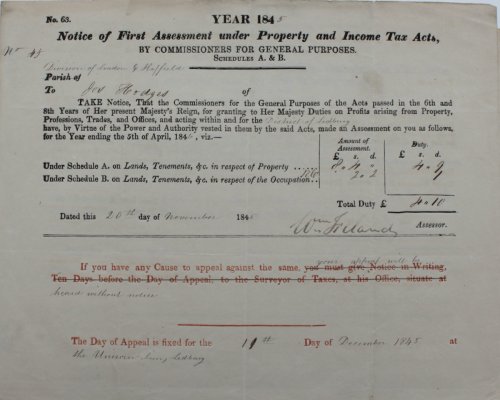 No. 63.
YEAR 1845
Notice of First Assessment under Property and Income Tax Acts,
BY COMMISSIONERS FOR GENERAL PURPOSES.
SCHEDULES A. & B.
No 45
Division of
Parish of
To Jos Hodges of
TAKE Notice, That the Commissioners for the General Purposes of the Acts passed in the 6th and
8th Years of Her present Majesty's Reign, for granting to Her Majesty Duties on Profits arising from Property,
Professions, Trades, and Offices, and acting within and for the District of Ledbury
have, by Virtue of the Power and Authority vested in them by the said Acts, made an Assessment on you as follows,
for the Year ending the 5th of April, 184 , viz.—
Amount of Assessment. Duty.
£ s. d. £ s. d.
Under Schedule A. on Lands, Tenements, &c. in respect of Property
Under Schedule B. on Lands, Tenements, &c. in respect of the Occupation
Total Duty £ 4 10
Dated this 20th day of November 1845
Wm Ireland Assessor.
your appeal will be
If you have any Cause to appeal against the same, you must give Notice in Writing,
Ten Days before the Day of Appeal, to the Surveyor of Taxes, at his Office, situate at
heard without notice
The Day of Appeal is fixed for the 11th Day of December 1845 at
the Unicorn Inn, Ledbury